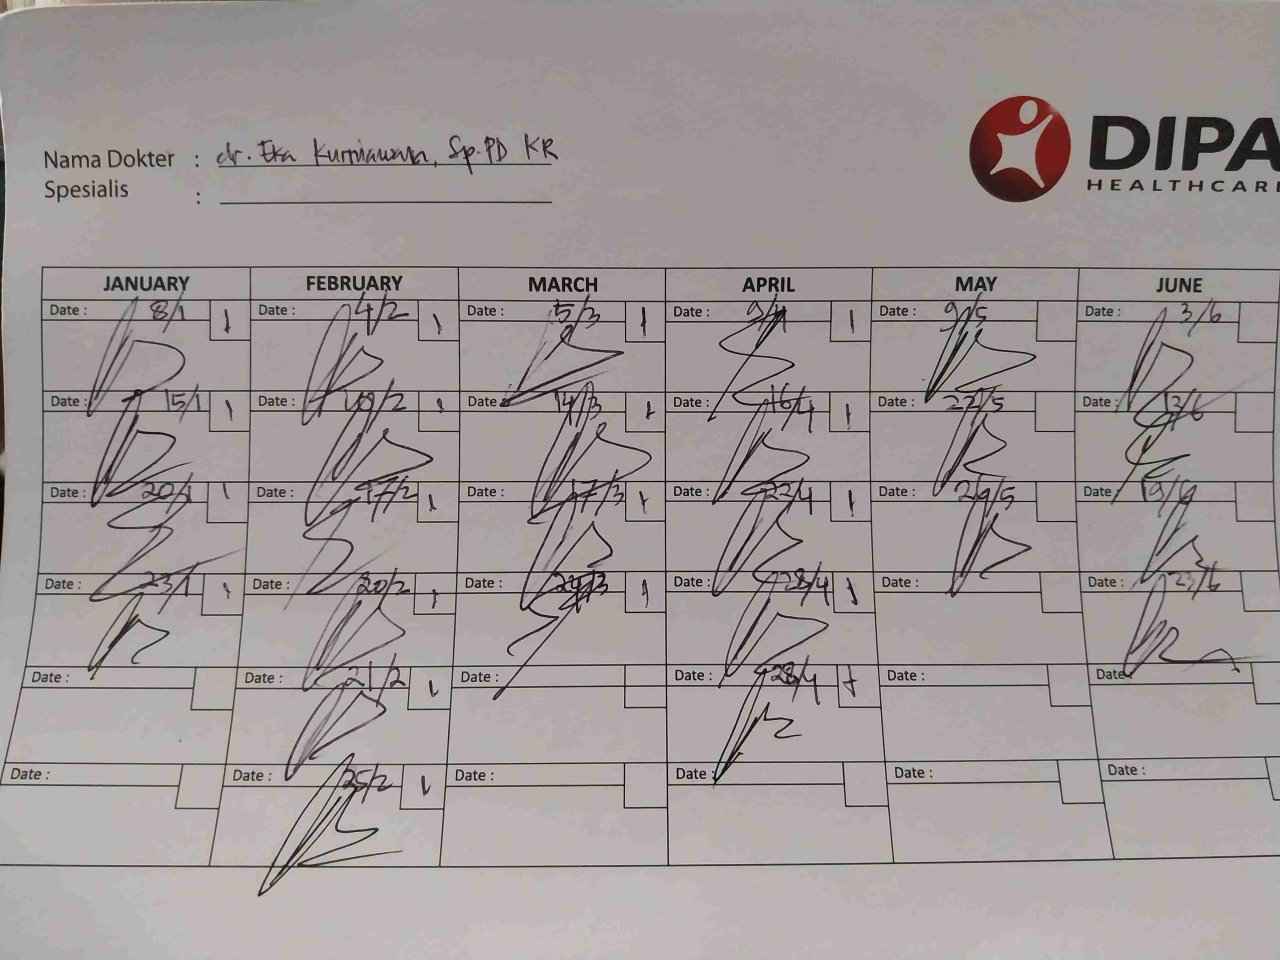 Nama Dokter : dr. Eka Kurniawan, Sp.PD KR
Spesialis :
DIPA
HEALTHCAR
JANUARY FEBRUARY MARCH APRIL MAY JUNE
Date : 8/1 1 Date : 4/2 1 Date : 5/3 1 Date : 9/4 1 Date : 9/5 Date : 3/6
Date : 15/1 1 Date : 10/2 1 Date : 14/3 1 Date : 16/4 1 Date : 22/5 Date : 13/6
Date : 20/1 1 Date : 17/2 1 Date : 17/3 1 Date : 22/4 1 Date : 29/5 Date : 19/6
Date : 23/1 1 Date : 20/2 1 Date : 24/3 1 Date : 28/4 1 Date : Date : 23/6
Date : Date : 21/2 1 Date : Date : 28/4 1 Date : Date :
Date : Date : 25/2 1 Date : Date : Date : Date :